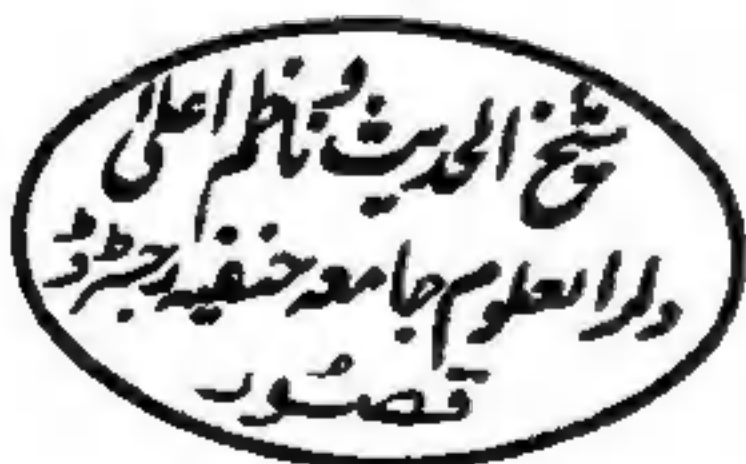 شیخ الحدیث و ناظم اعلیٰ
دارالعلوم جامعہ حنفیہ رجسٹرڈ
قصُور